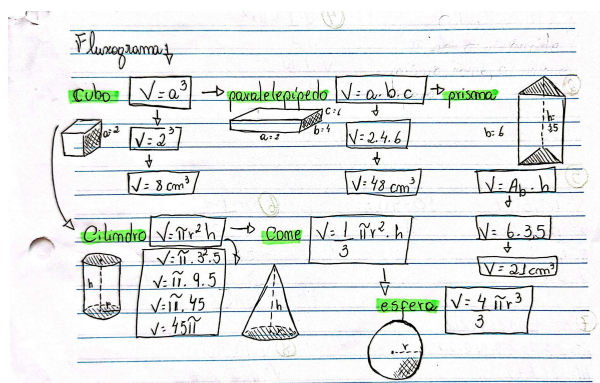 Fluxograma
Cubo V=a³ → paralelepípedo V=a.b.c → prisma
a=2
V=2³
V=8cm³
a=2 b=4 c=6
V=2.4.6
V=48cm³
b=6 h=3.5
V=Ab.h
V=6.3.5
V=21cm³
Cilindro V=πr²h → Cone V=1/3 πr².h
h
r
V=π.3².5
V=π.9.5
V=π.45
V=45π
h
esfera V=4/3 πr³
r